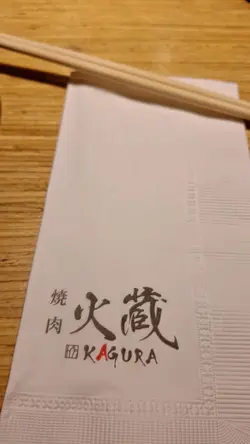 焼肉
火蔵
KAGURA